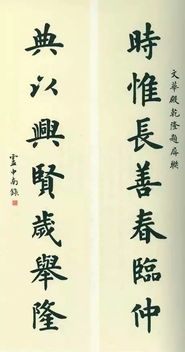 文華殿乾隆題屏聯
時惟長善春臨仲
典以興賢歲舉隆
中南錄